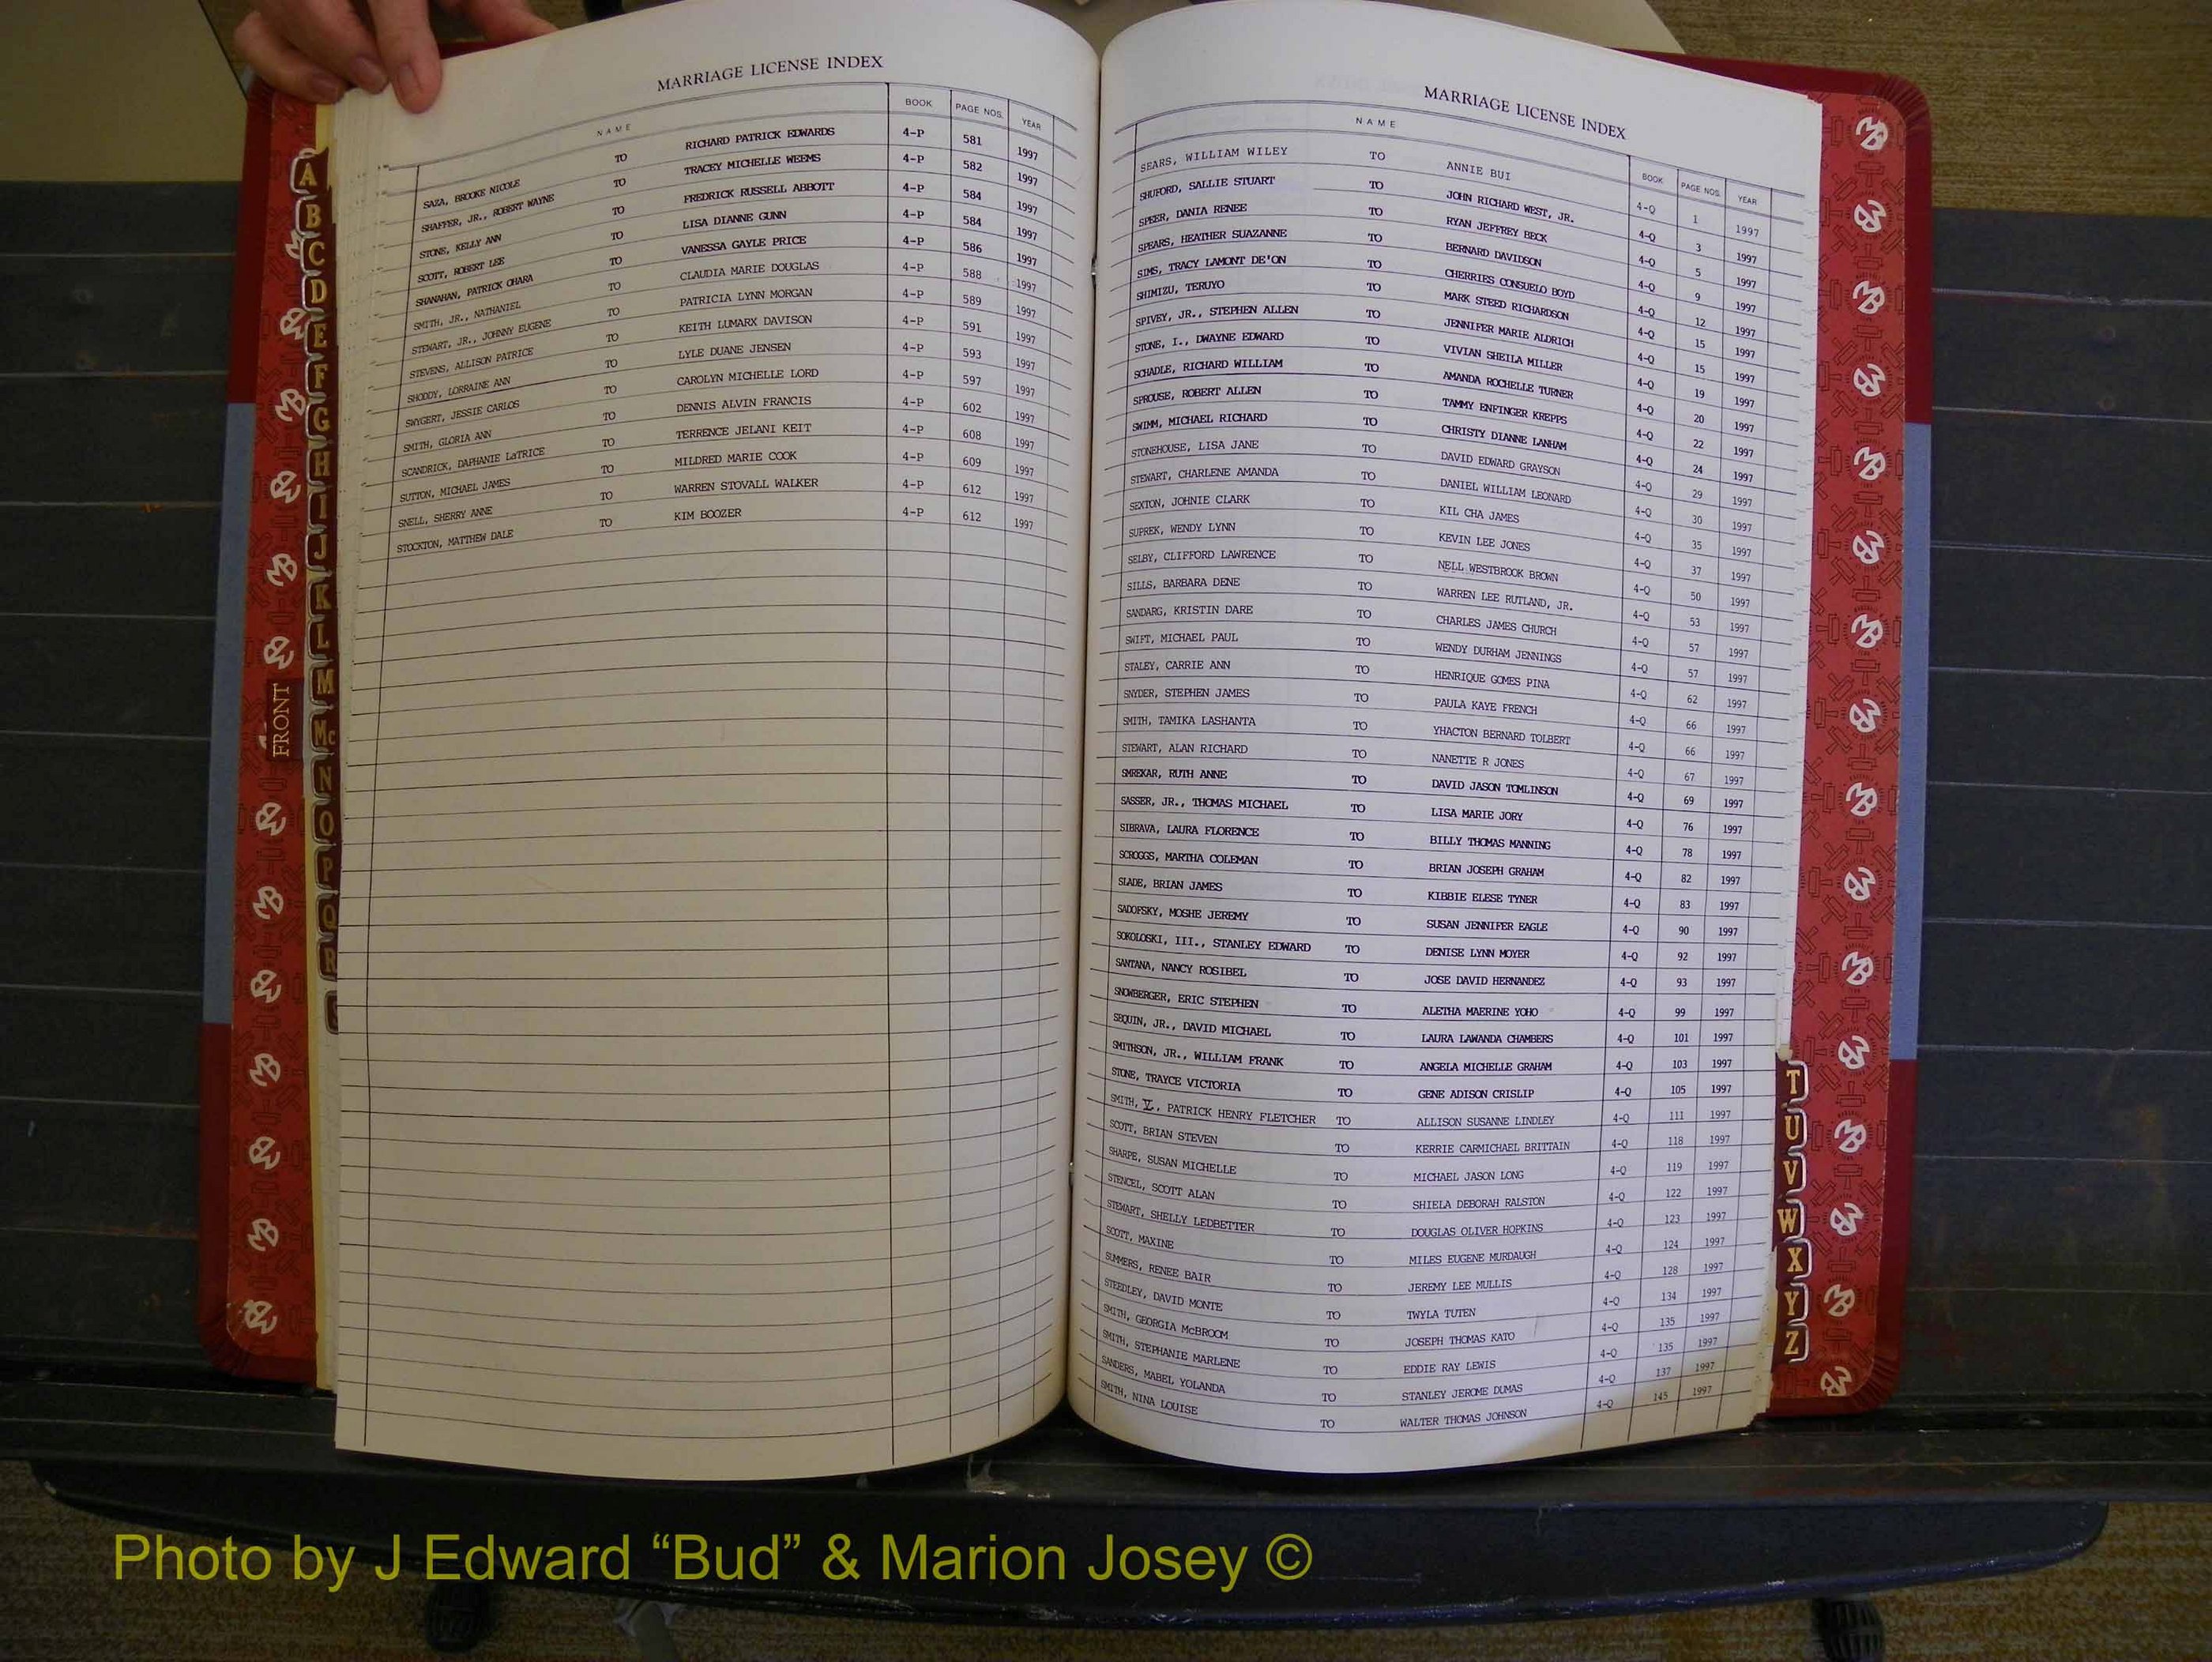 MARRIAGE LICENSE INDEX
NAME BOOK PAGE NOS. YEAR
SAZA, BROOKE NICOLE TO RICHARD PATRICK EDWARDS 4-P 581 1997
SHAFFER, JR., ROBERT WAYNE TO TRACEY MICHELLE WEEMS 4-P 582 1997
STONE, KELLY ANN TO FREDRICK RUSSELL ABBOTT 4-P 584 1997
SCOTT, ROBERT LEE TO LISA DIANNE GUNN 4-P 584 1997
SHANAHAN, PATRICK OHARA TO VANESSA GAYLE PRICE 4-P 586 1997
SMITH, JR., NATHANIEL TO CLAUDIA MARIE DOUGLAS 4-P 588 1997
STEWART, JR., JOHNNY EUGENE TO PATRICIA LYNN MORGAN 4-P 589 1997
STEVENS, ALLISON PATRICE TO KEITH LUMARX DAVISON 4-P 591 1997
SHODDY, LORRAINE ANN TO LYLE DUANE JENSEN 4-P 593 1997
SWYGERT, JESSIE CARLOS TO CAROLYN MICHELLE LORD 4-P 597 1997
SMITH, GLORIA ANN TO DENNIS ALVIN FRANCIS 4-P 602 1997
SCANDRICK, DAPHANIE LaTRICE TO TERRENCE JELANI KEIT 4-P 608 1997
SUTTON, MICHAEL JAMES TO MILDRED MARIE COOK 4-P 609 1997
SNELL, SHERRY ANNE TO WARREN STOVALL WALKER 4-P 612 1997
STOCKTON, MATTHEW DALE TO KIM BOOZER 4-P 612 1997
MARRIAGE LICENSE INDEX
NAME BOOK PAGE NOS. YEAR
SEARS, WILLIAM WILEY TO ANNIE BUI 4-Q 1 1997
SHUFORD, SALLIE STUART TO JOHN RICHARD WEST, JR. 4-Q 3 1997
SPEER, DANIA RENEE TO RYAN JEFFREY BECK 4-Q 5 1997
SPEARS, HEATHER SUAZANNE TO BERNARD DAVIDSON 4-Q 9 1997
SIMS, TRACY LAMONT DE'ON TO CHERRIES CONSUELO BOYD 4-Q 12 1997
SHIMIZU, TERUYO TO MARK STEED RICHARDSON 4-Q 15 1997
SPIVEY, JR., STEPHEN ALLEN TO JENNIFER MARIE ALDRICH 4-Q 15 1997
STONE, I., DWAYNE EDWARD TO VIVIAN SHEILA MILLER 4-Q 19 1997
SCHADLE, RICHARD WILLIAM TO AMANDA ROCHELLE TURNER 4-Q 20 1997
SPROUSE, ROBERT ALLEN TO TAMMY ENFINGER KREPPS 4-Q 22 1997
SWIMM, MICHAEL RICHARD TO CHRISTY DIANNE LANHAM 4-Q 24 1997
STONEHOUSE, LISA JANE TO DAVID EDWARD GRAYSON 4-Q 29 1997
STEWART, CHARLENE AMANDA TO DANIEL WILLIAM LEONARD 4-Q 30 1997
SEXTON, JOHNIE CLARK TO KIL CHA JAMES 4-Q 35 1997
SUPREK, WENDY LYNN TO KEVIN LEE JONES 4-Q 37 1997
SELBY, CLIFFORD LAWRENCE TO NELL WESTBROOK BROWN 4-Q 50 1997
SILLS, BARBARA DENE TO WARREN LEE RUTLAND, JR. 4-Q 53 1997
SANDARG, KRISTIN DARE TO CHARLES JAMES CHURCH 4-Q 57 1997
SWIFT, MICHAEL PAUL TO WENDY DURHAM JENNINGS 4-Q 57 1997
STALEY, CARRIE ANN TO HENRIQUE GOMES PINA 4-Q 62 1997
SNYDER, STEPHEN JAMES TO PAULA KAYE FRENCH 4-Q 66 1997
SMITH, TAMIKA LASHANTA TO YHACTON BERNARD TOLBERT 4-Q 66 1997
STEWART, ALAN RICHARD TO NANETTE R JONES 4-Q 67 1997
SMREKAR, RUTH ANNE TO DAVID JASON TOMLINSON 4-Q 69 1997
SASSER, JR., THOMAS MICHAEL TO LISA MARIE JORY 4-Q 76 1997
SIBRAVA, LAURA FLORENCE TO BILLY THOMAS MANNING 4-Q 78 1997
SCROGGS, MARTHA COLEMAN TO BRIAN JOSEPH GRAHAM 4-Q 82 1997
SLADE, BRIAN JAMES TO KIBBIE ELESE TYNER 4-Q 83 1997
SADOFSKY, MOSHE JEREMY TO SUSAN JENNIFER EAGLE 4-Q 90 1997
SOKOLOSKI, III., STANLEY EDWARD TO DENISE LYNN MOYER 4-Q 92 1997
SANTANA, NANCY ROSIBEL TO JOSE DAVID HERNANDEZ 4-Q 93 1997
SNOWBERGER, ERIC STEPHEN TO ALETHA MAERINE YOHO 4-Q 99 1997
SEQUIN, JR., DAVID MICHAEL TO LAURA LAWANDA CHAMBERS 4-Q 101 1997
SMITHSON, JR., WILLIAM FRANK TO ANGELA MICHELLE GRAHAM 4-Q 103 1997
STONE, TRAYCE VICTORIA TO GENE ADISON CRISLIP 4-Q 105 1997
SMITH, V., PATRICK HENRY FLETCHER TO ALLISON SUSANNE LINDLEY 4-Q 111 1997
SCOTT, BRIAN STEVEN TO KERRIE CARMICHAEL BRITTAIN 4-Q 118 1997
SHARPE, SUSAN MICHELLE TO MICHAEL JASON LONG 4-Q 119 1997
STENCEL, SCOTT ALAN TO SHIELA DEBORAH RALSTON 4-Q 122 1997
STEWART, SHELLY LEDBETTER TO DOUGLAS OLIVER HOPKINS 4-Q 123 1997
SCOTT, MAXINE TO MILES EUGENE MURDAUGH 4-Q 124 1997
SUMMERS, RENEE BAIR TO JEREMY LEE MULLIS 4-Q 128 1997
STEEDLEY, DAVID MONTE TO TWYLA TUTEN 4-Q 134 1997
SMITH, GEORGIA McBROOM TO JOSEPH THOMAS KATO 4-Q 135 1997
SMITH, STEPHANIE MARLENE TO EDDIE RAY LEWIS 4-Q 135 1997
SANDERS, MABEL YOLANDA TO STANLEY JEROME DUMAS 4-Q 137 1997
SMITH, NINA LOUISE TO WALTER THOMAS JOHNSON 4-Q 145 1997
A
B
C
D
E
F
G
H
I
J
K
L
M
Mc
N
O
P
Q
R
FRONT
T
U
V
W
X
Y
Z
Photo by J Edward “Bud” & Marion Josey ©